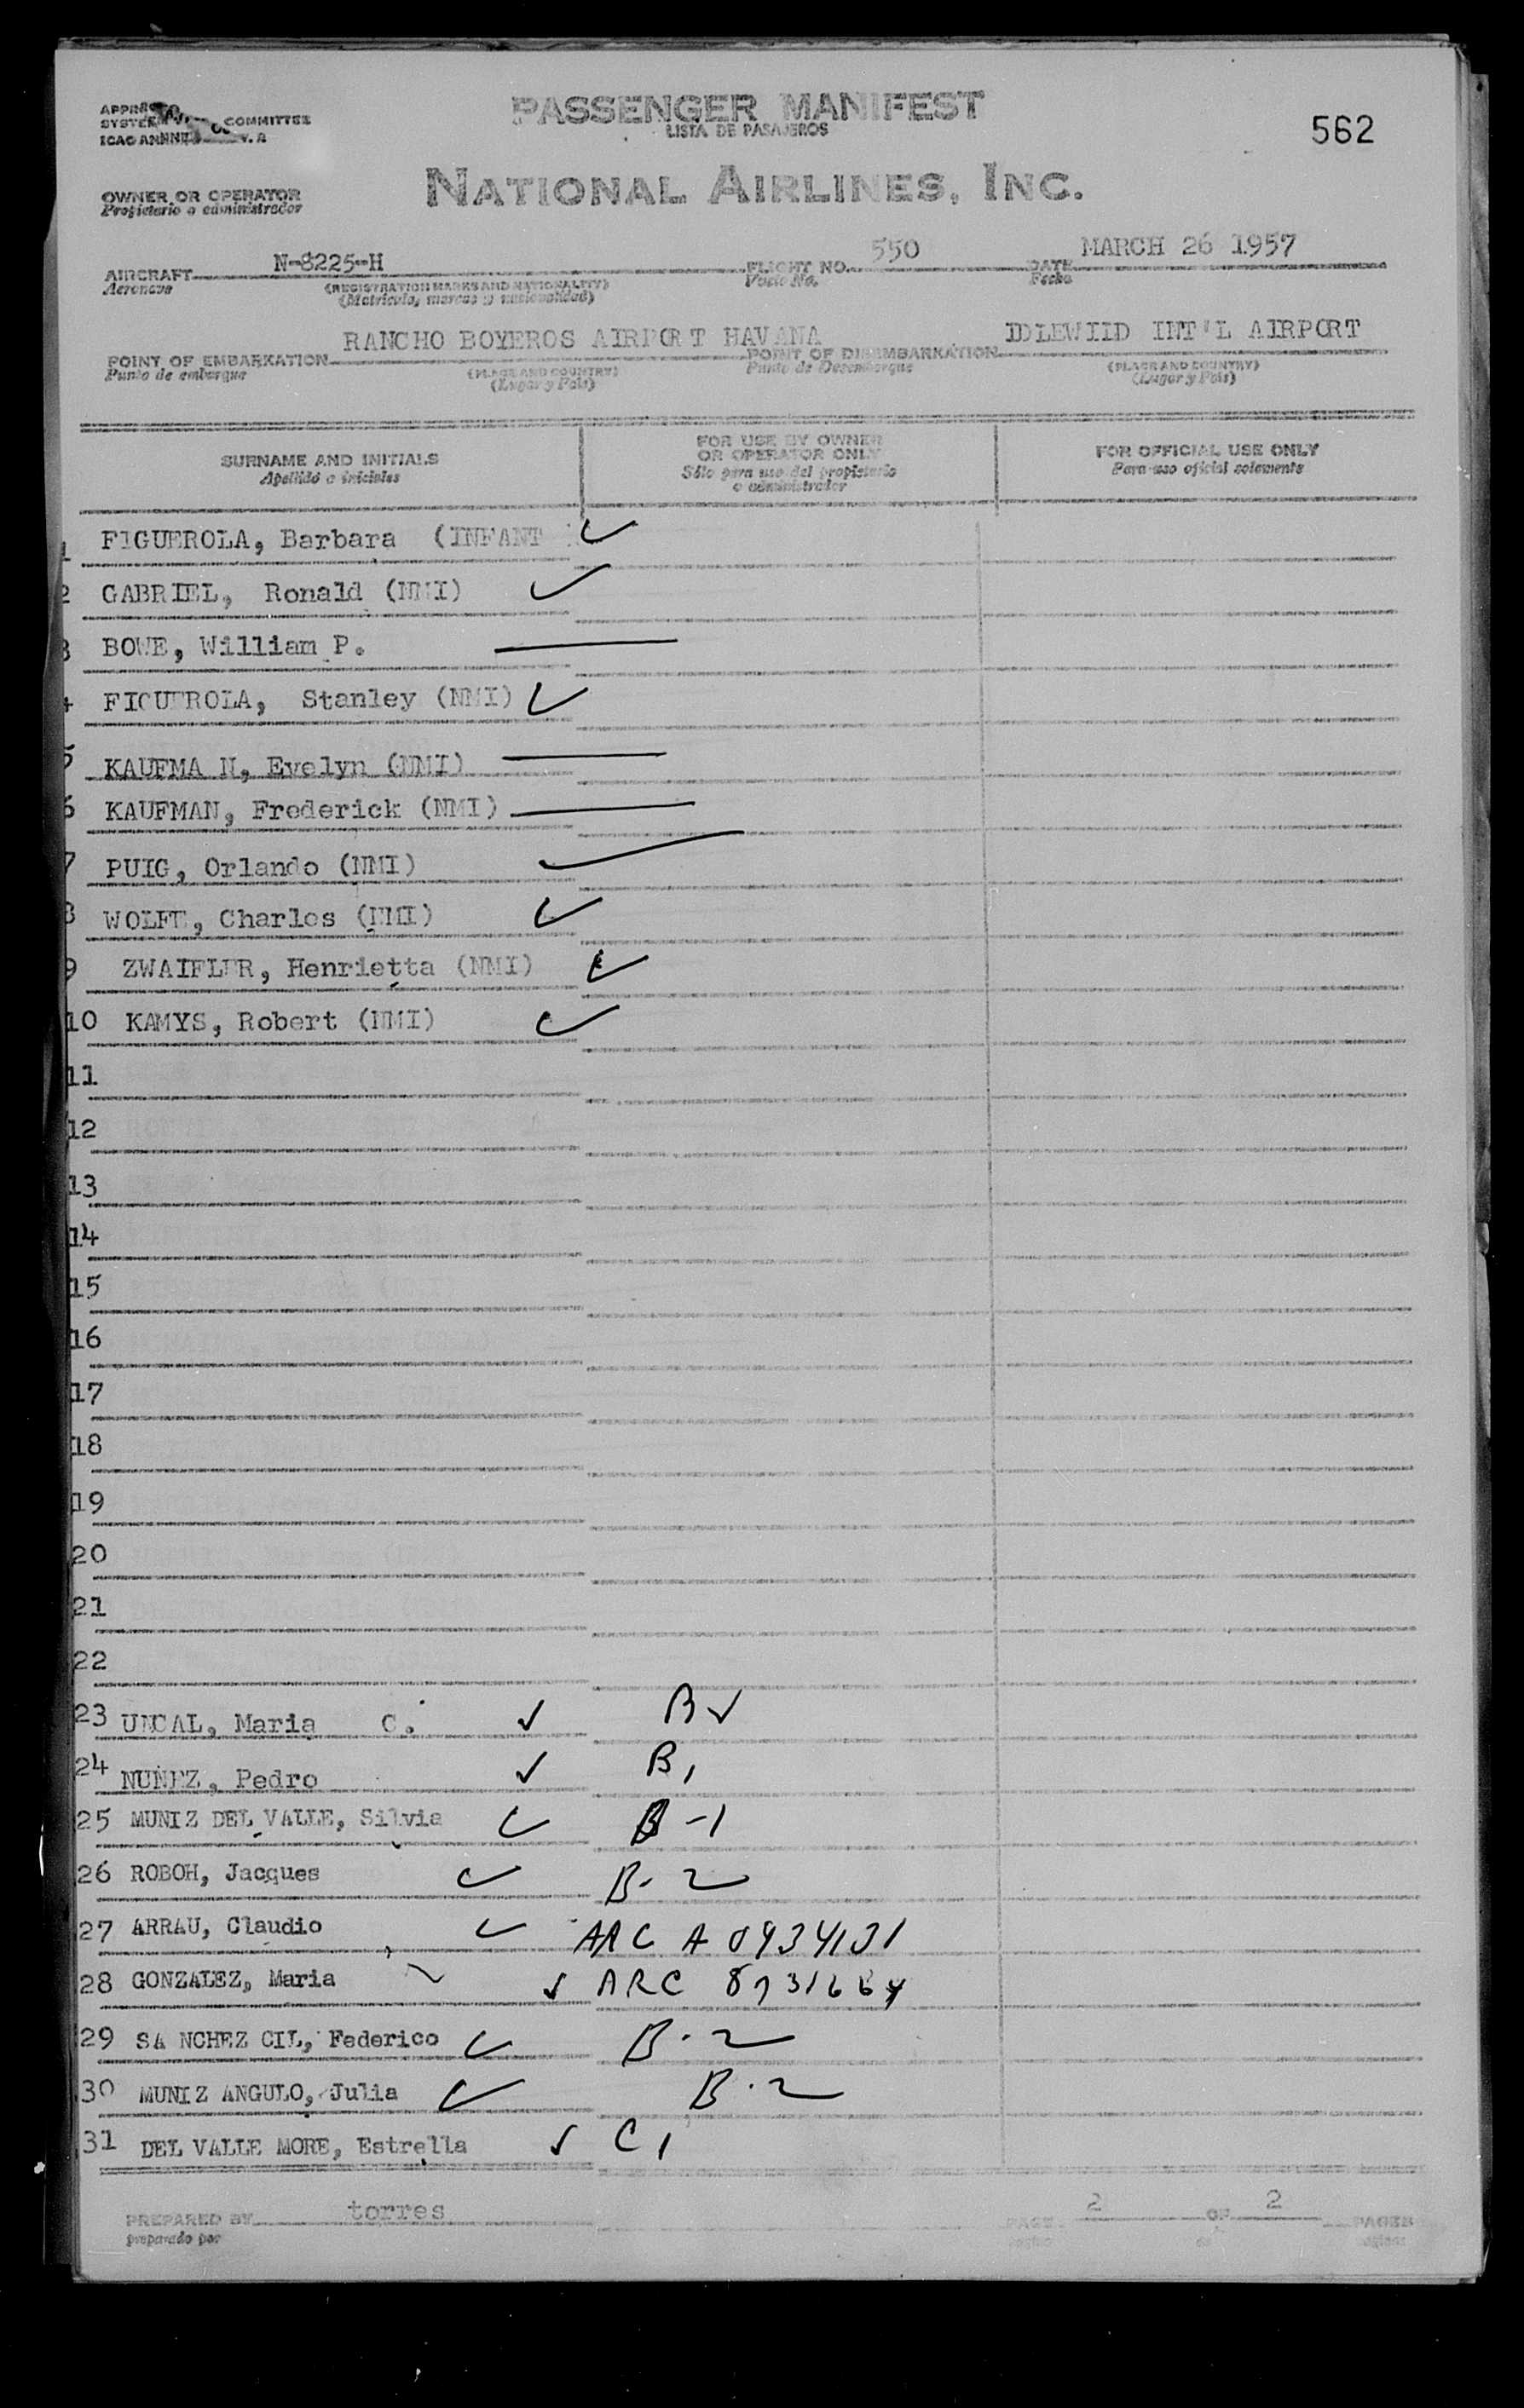 PASSENGER MANIFEST
LISTA DE PASAJEROS
562
COMMITTEE
ICAO ANNEX V. A
NATIONAL AIRLINES, INC.
OWNER OR OPERATOR
Propietario o administrador
AIRCRAFT N-8225-H FLIGHT NO. 550 DATE MARCH 26 1957
Aeronave (REGISTRATION MARKS AND NATIONALITY) Vuelo No. Fecha
(Matricula, marcas y nacionalidad)
POINT OF EMBARKATION RANCHO BOYEROS AIRPORT HAVANA POINT OF DISEMBARKATION IDLEWIID INT'L AIRPORT
Punto de embarque (PLACE AND COUNTRY) Punto de Desembarque (PLACE AND COUNTRY)
(Lugar y Pais) (Lugar y Pais)
SURNAME AND INITIALS
Apellido e iniciales
FOR USE BY OWNER
OR OPERATOR ONLY
Sólo para uso del propietario
o administrador
FOR OFFICIAL USE ONLY
Para uso oficial solamente
1 FIGUEROLA, Barbara (INFANT ✓
2 GABRIEL, Ronald (NMI) ✓
3 BOWE, William P. —
4 FIGUEROLA, Stanley (NMI) ✓
5 KAUFMA N, Evelyn (NMI) —
6 KAUFMAN, Frederick (NMI) —
7 PUIG, Orlando (NMI) ✓
8 WOLFE, Charles (NMI) ✓
9 ZWAIFLER, Henrietta (NMI) ✓
10 KAMYS, Robert (NMI) ✓
11
12
13
14
15
16
17
18
19
20
21
22
23 UNCAL, Maria C. ✓ B ✓
24 NUÑEZ, Pedro ✓ B1
25 MUNIZ DEL VALLE, Silvia ✓ B-1
26 ROBOH, Jacques ✓ B-2
27 ARRAU, Claudio ✓ ARC A 0934131
28 GONZALEZ, Maria ✓ ARC
29 SA NCHEZ CIL, Federico ✓ B-2
30 MUNIZ ANGULO, Julia ✓ B-2
31 DEL VALLE MORE, Estrella ✓ C1
PREPARED BY torres PAGE 2 OF 2 PAGES
preparado por